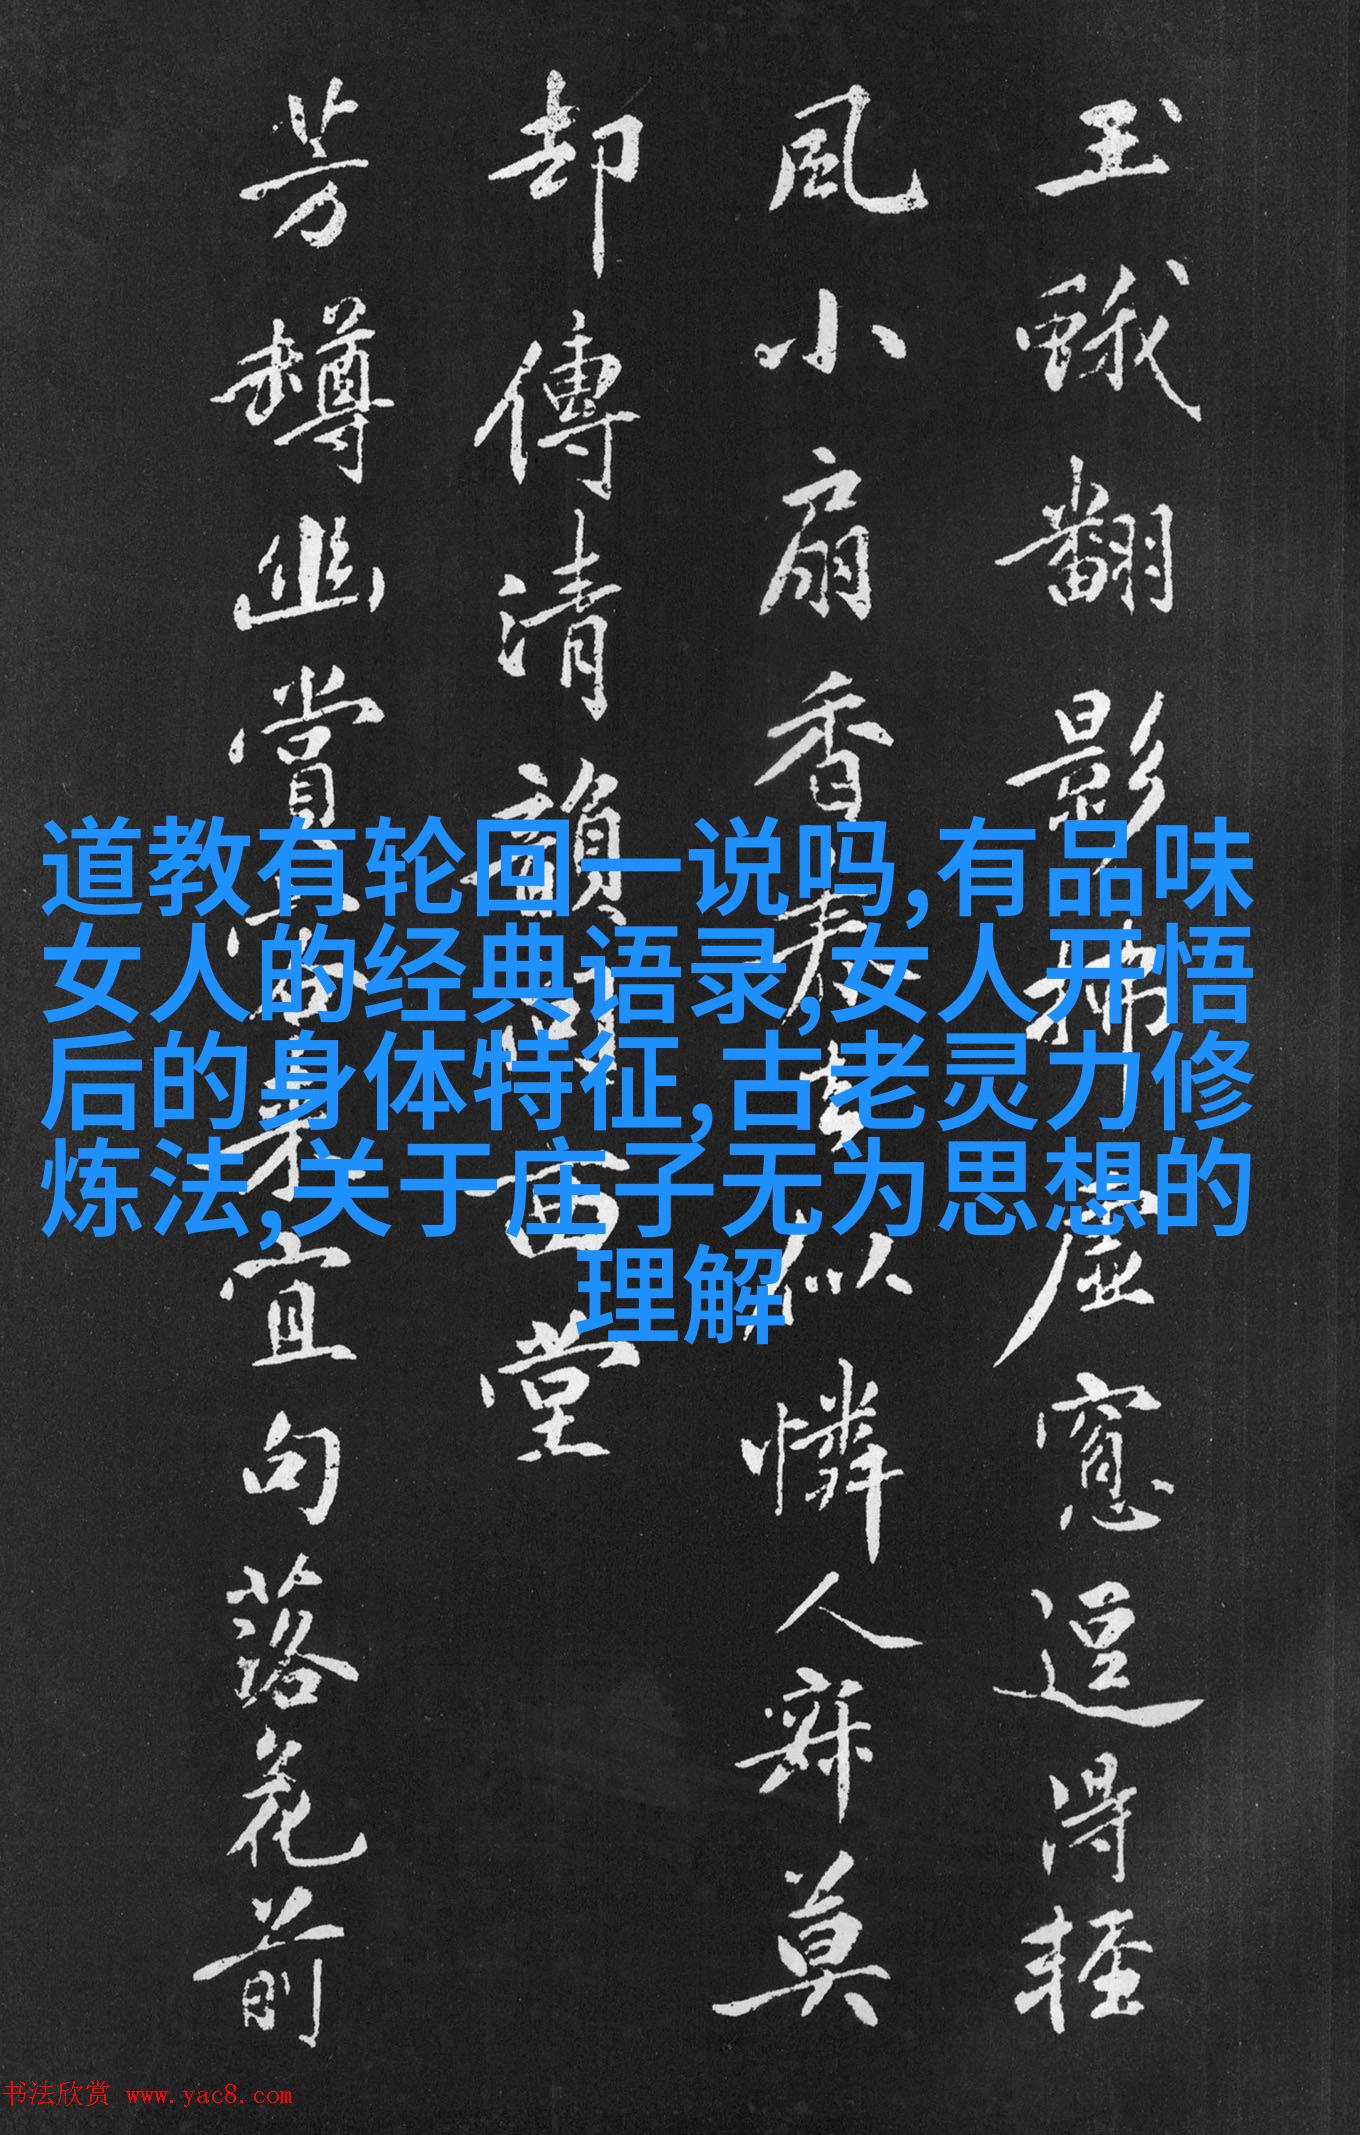 玉蛾翻影拂虚窻逗得輕
風小扇香去似憐人寐莫
却傳清韻西堂
芳樽幽賞來宜句落花前
道教有轮回一说吗,有品味
女人的经典语录,女人开悟
后的身体特征,古老灵力修
炼法,关于庄子无为思想的
理解
书法欣赏 www.yac8.com